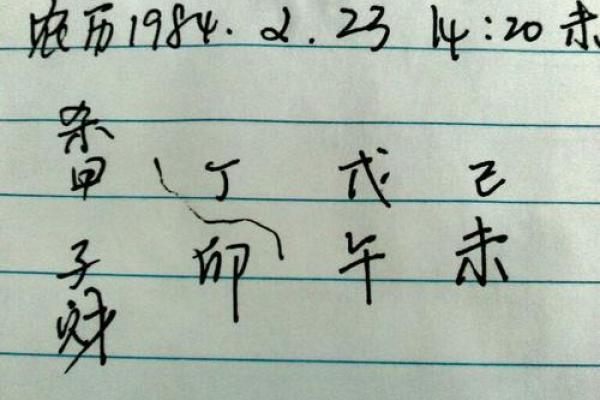 农历1984.2.23 14:20未
杀
甲 丁 戊 己
子 卯 午 未
财